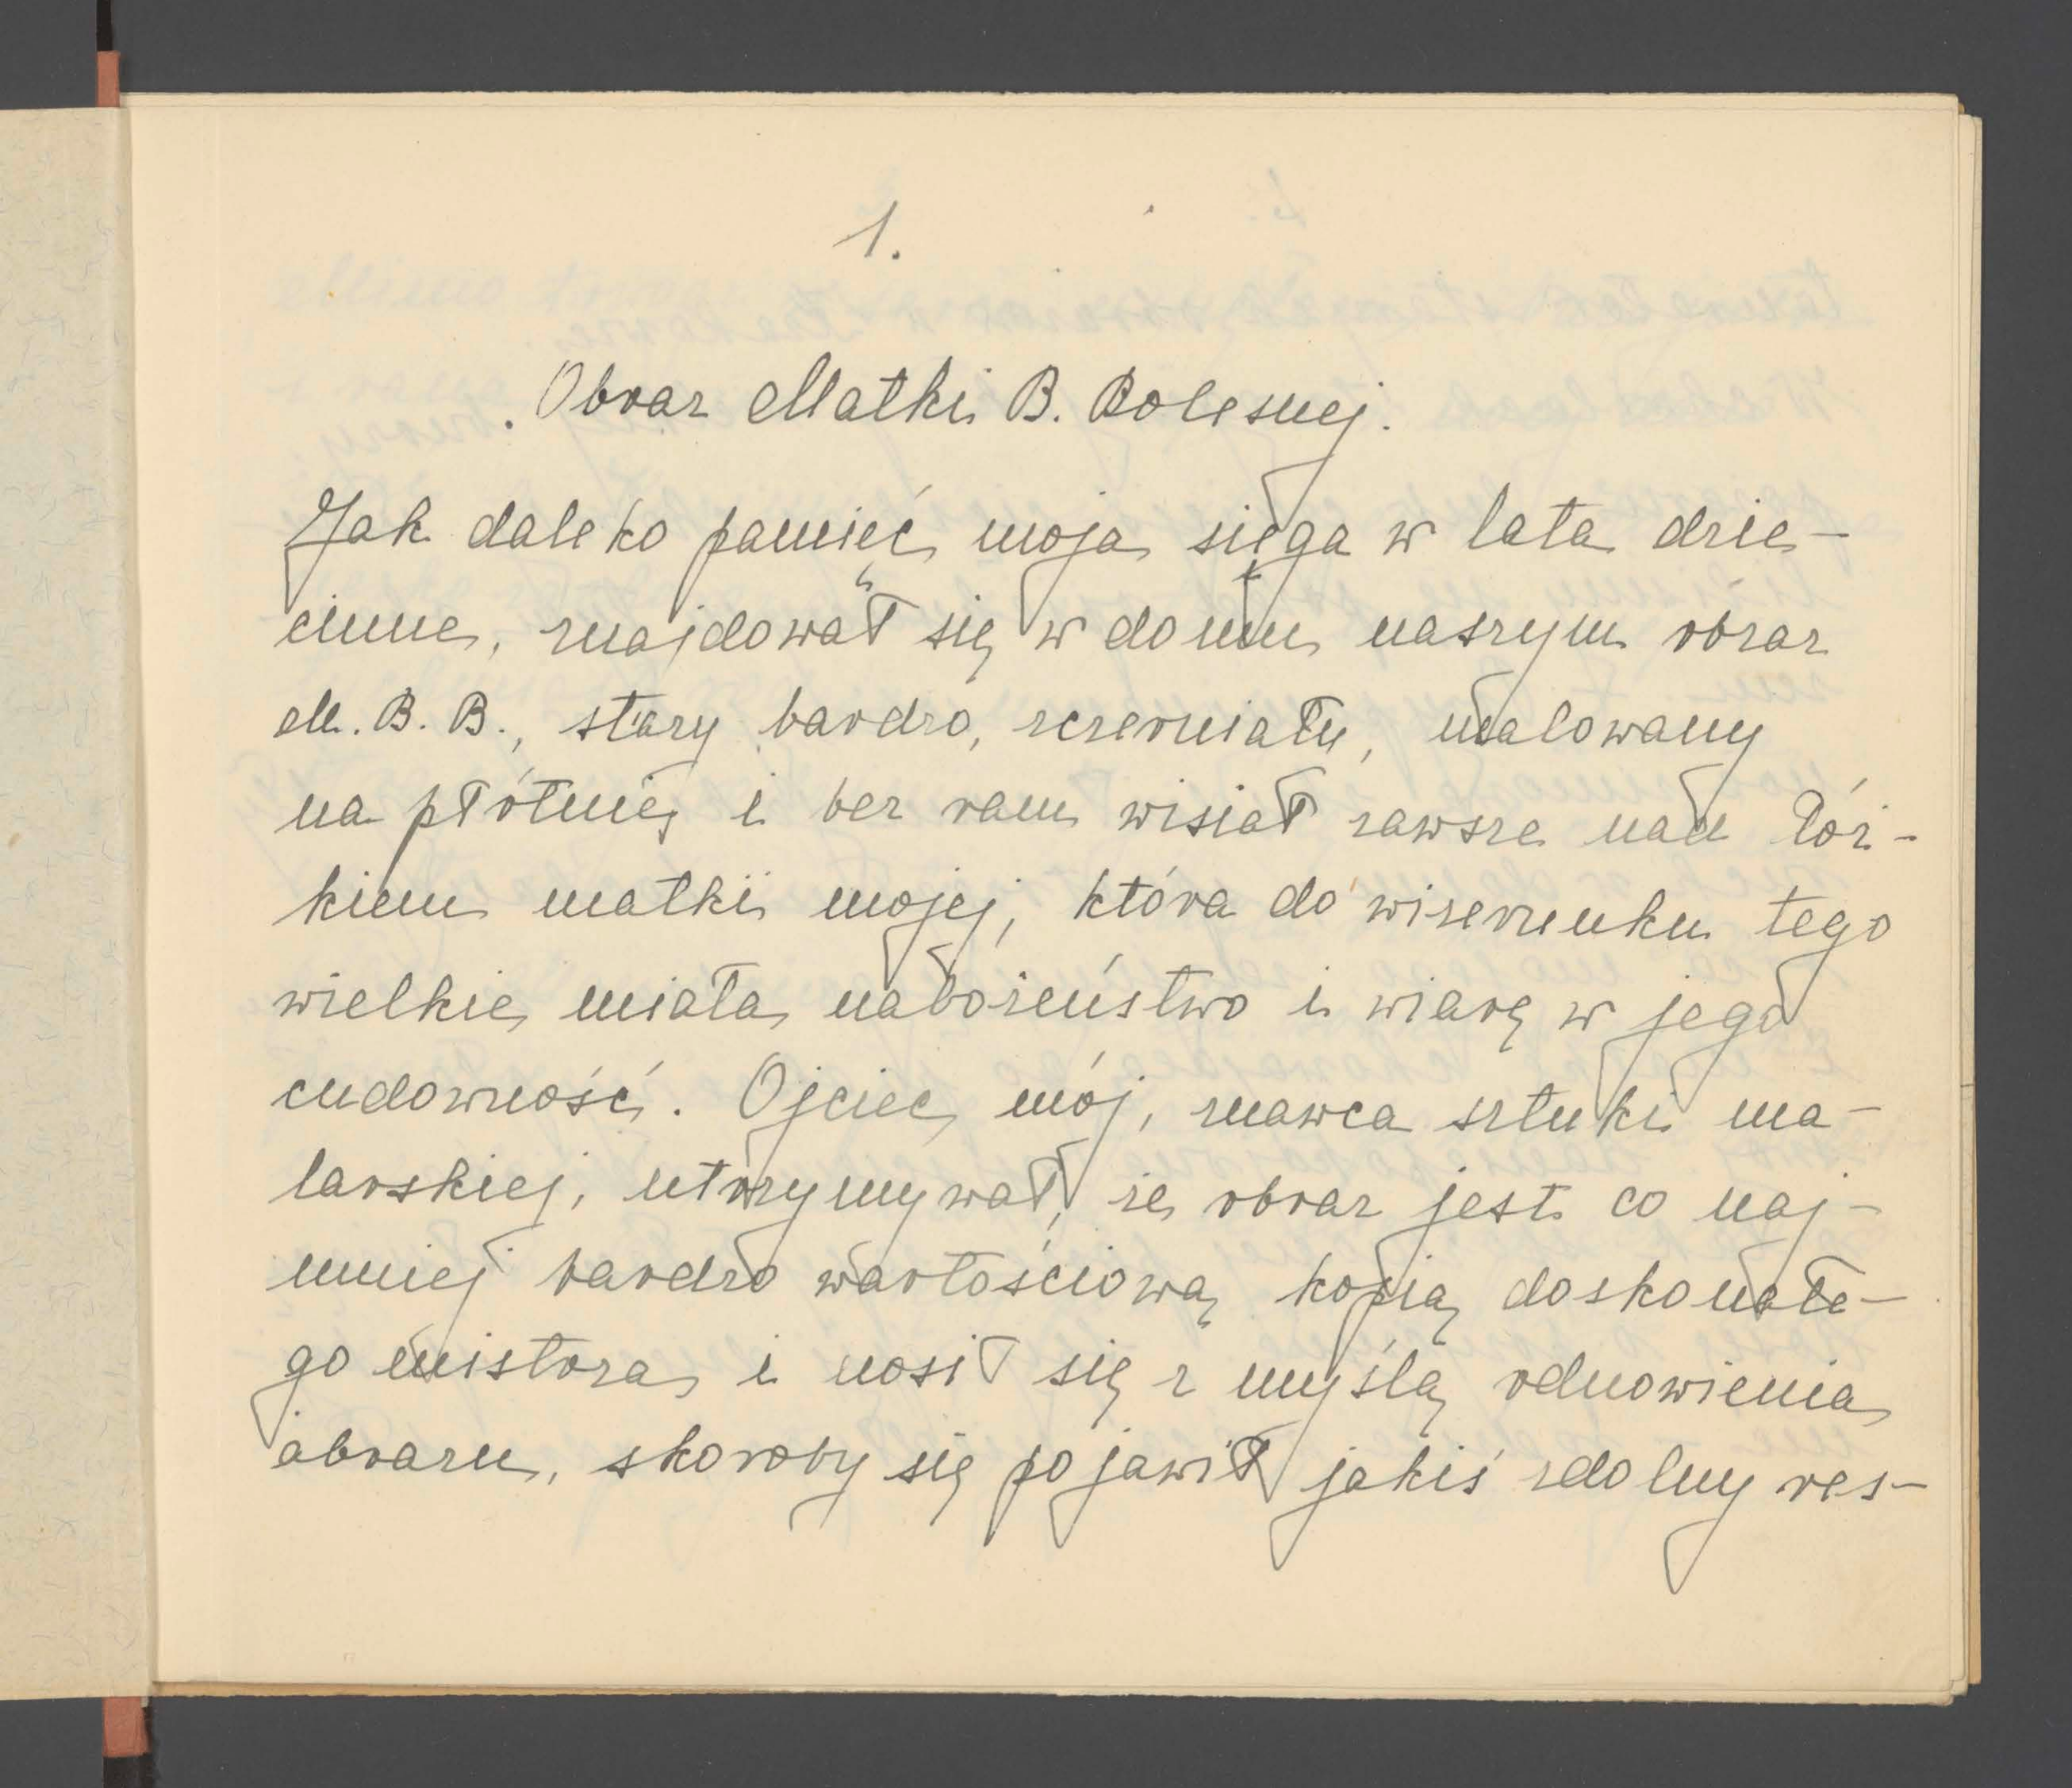 1.
Obraz Matki B. Bolesnej.
Jak daleko pamięć moja sięga w lata dzie-
cinne, znajdował się w domu naszym obraz
M. B. B., stary bardzo, sczerniały, malowany
na płótnie i bez ram wisiał zawsze nad łóż-
kiem matki mojej, która do wizerunku tego
wielkie miała nabożeństwo i wiarę w jego
cudowność. Ojciec mój, znawca sztuki ma-
larskiej, utrzymywał, że obraz jest co naj-
mniej bardzo wartościową kopią doskonałe-
go mistrza i nosił się z myślą odnowienia
obrazu, skoroby się pojawił jakiś zdolny res-